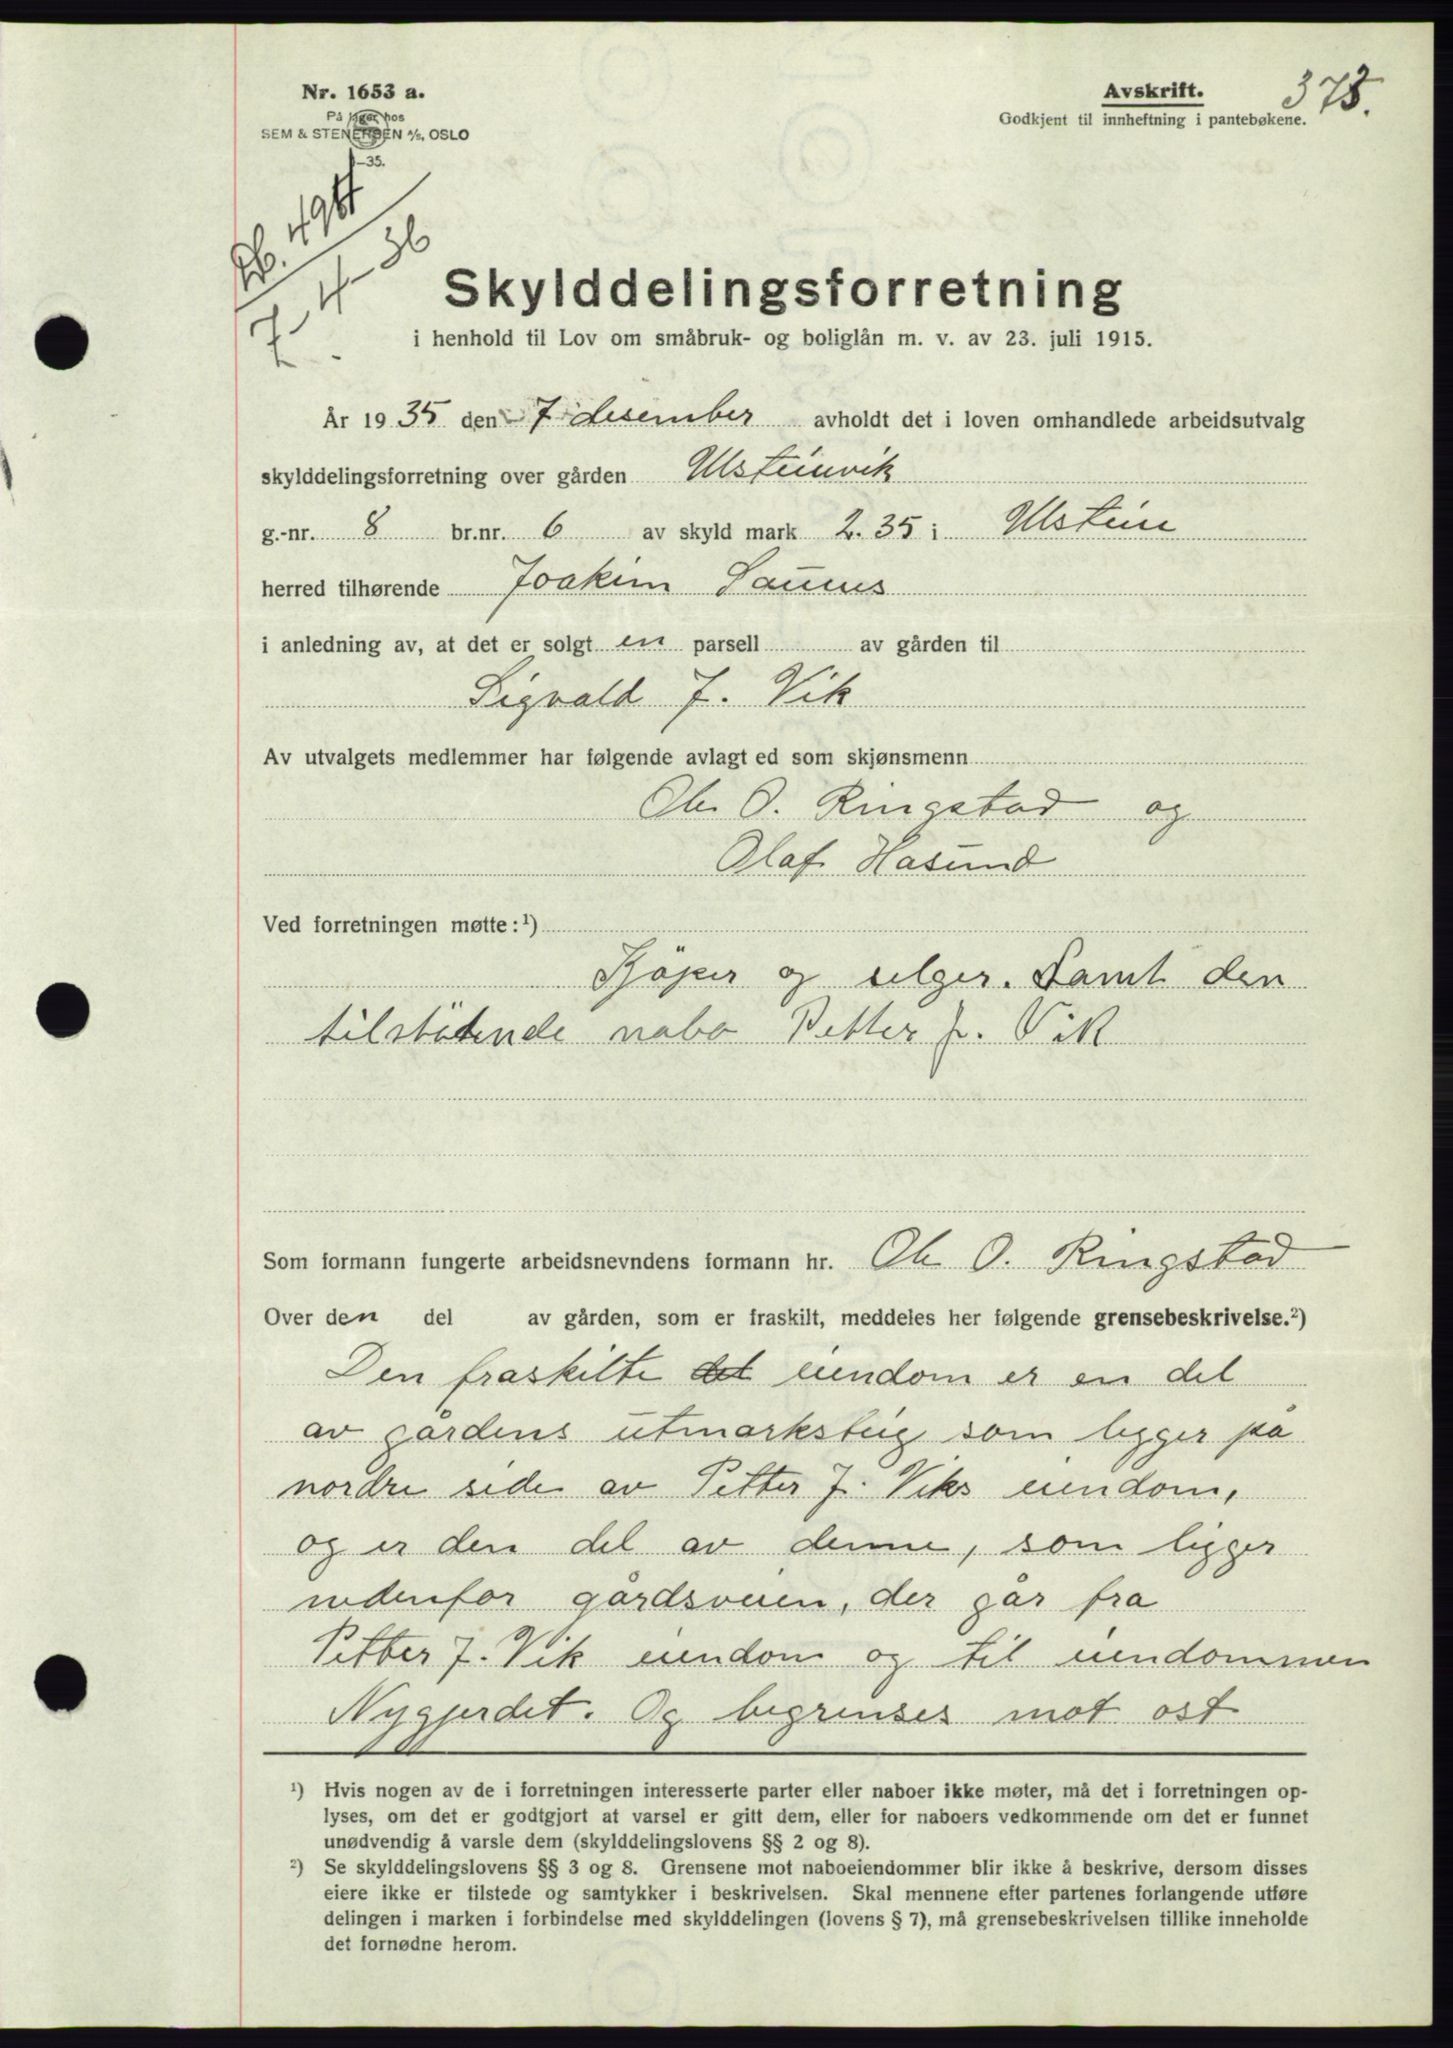 Nr. 1653 a.
På lager hos
SEM & STENERSEN A/S, OSLO
–35.
Avskrift.
Godkjent til innheftning i pantebøkene.
378.
7–4–36
Skylddelingsforretning
i henhold til Lov om småbruk- og boliglån m. v. av 23. juli 1915.
År 1935 den 7 desember avholdt det i loven omhandlede arbeidsutvalg
skylddelingsforretning over gården Ulsteinvik
g.-nr. 8 br.nr. 6 av skyld mark 2.35 i Ulstein
herred tilhørende Joakim Saunes
i anledning av, at det er solgt en parsell av gården til
Sigvald J. Vik
Av utvalgets medlemmer har følgende avlagt ed som skjønsmenn
Ole O. Ringstad og
Olaf Hasund
Ved forretningen møtte: ¹)
Kjöper og selger. Samt den
tilstötende nabo Petter J. Vik
Som formann fungerte arbeidsnevndens formann hr. Ole O. Ringstad
Over den del av gården, som er fraskilt, meddeles her følgende grensebeskrivelse.²)
Den fraskilte det eiendom er en del
av gårdens utmarksteig som ligger på
nordre side av Petter J. Viks eiendom,
og er den del av denne, som ligger
nedenfor gårdsveien, der går fra
Petter J. Vik eiendom og til eiendommen
Nygjerdet. Og begrenses mot ost
¹) Hvis nogen av de i forretningen interesserte parter eller naboer ikke møter, må det i forretningen op-
lyses, om det er godtgjort at varsel er gitt dem, eller for naboers vedkommende om det er funnet
unødvendig å varsle dem (skylddelingslovens §§ 2 og 8).
²) Se skylddelingslovens §§ 3 og 8. Grensene mot naboeiendommer blir ikke å beskrive, dersom disses
eiere ikke er tilstede og samtykker i beskrivelsen. Skal mennene efter partenes forlangende utføre
delingen i marken i forbindelse med skylddelingen (lovens § 7), må grensebeskrivelsen tillike inneholde
det fornødne herom.